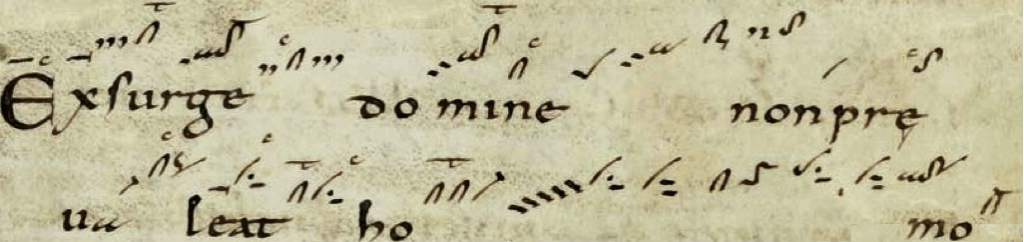 Exsurge do mine non pre
ua leat ho mo